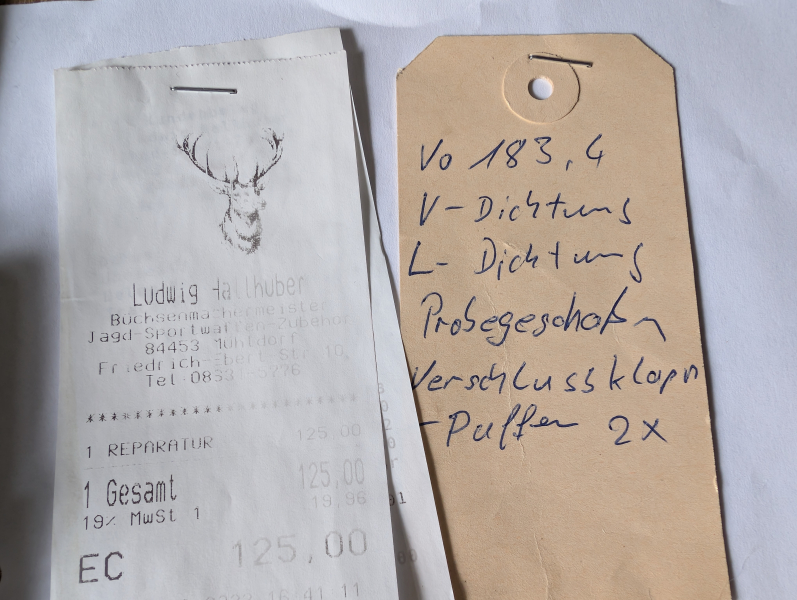 Ludwig Hallhuber
Büchsenmachermeister
Jagd-Sportwaffen-Zubehör
84453 Mühldorf
Friedrich-Ebert-Str.10
Tel.08631-5776
1 REPARATUR 125,00
1 Gesamt 125,00
19% MwSt 1 19,96
EC 125,00
16:41:11
Vo 183,4
V-Dichtung
L-Dichtung
Probegeschoßen
Verschlussklapn
-Puffer 2x